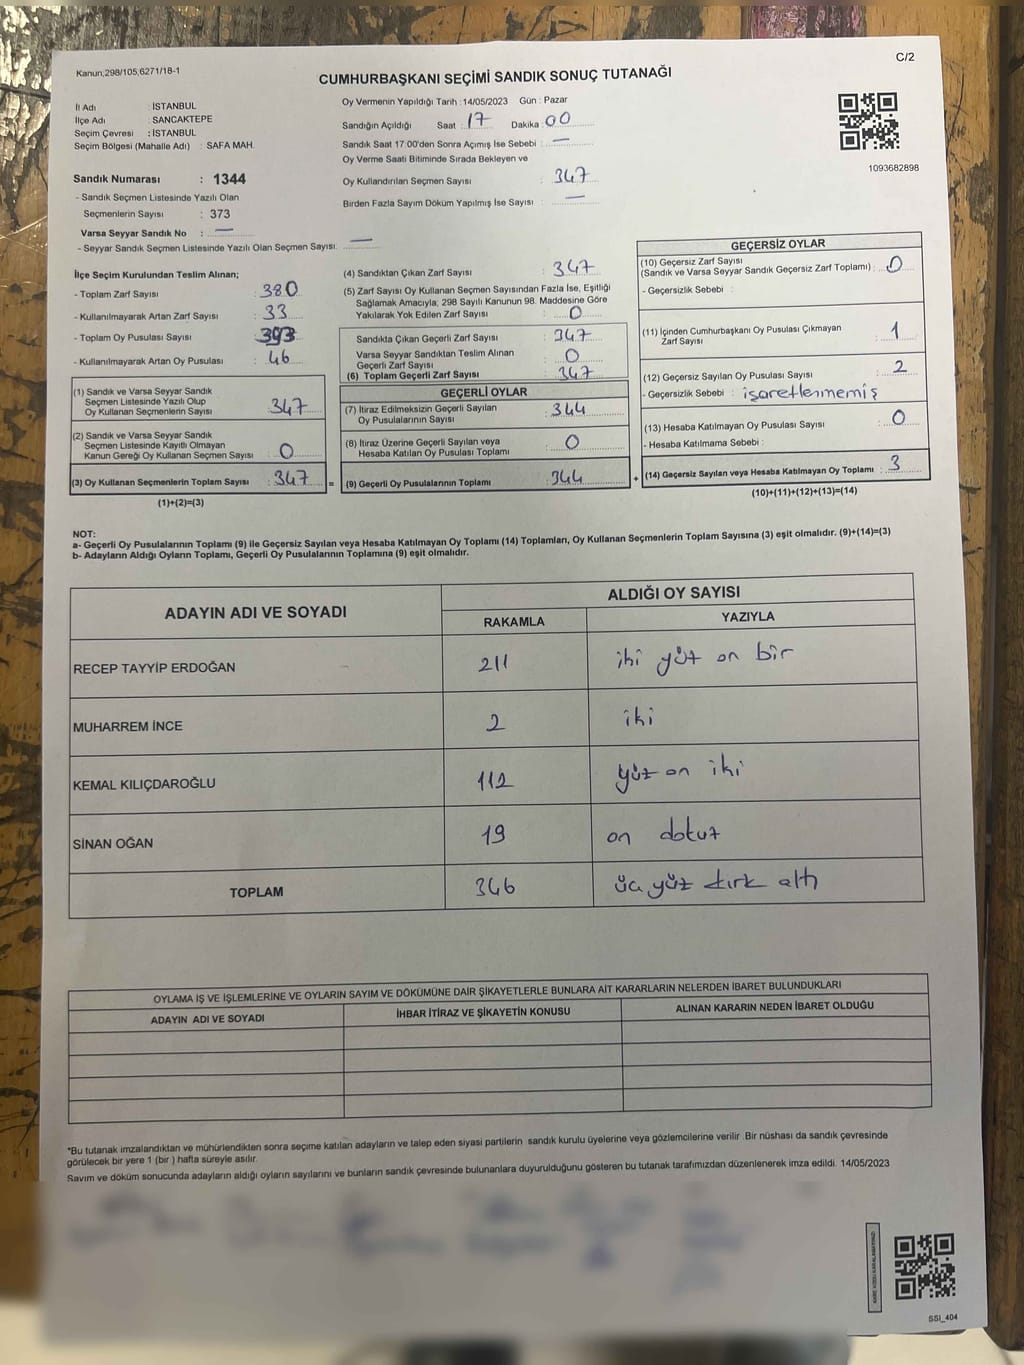 Kanun;298/105;6271/18-1
C/2
CUMHURBAŞKANI SEÇİMİ SANDIK SONUÇ TUTANAĞI
İl Adı : İSTANBUL
İlçe Adı : SANCAKTEPE
Seçim Çevresi : İSTANBUL
Seçim Bölgesi (Mahalle Adı) : SAFA MAH.
Sandık Numarası : 1344
- Sandık Seçmen Listesinde Yazılı Olan
Seçmenlerin Sayısı : 373
Varsa Seyyar Sandık No : —
- Seyyar Sandık Seçmen Listesinde Yazılı Olan Seçmen Sayısı: —
Oy Vermenin Yapıldığı Tarih :14/05/2023 Gün : Pazar
Sandığın Açıldığı Saat : 17 Dakika : 00
Sandık Saat 17:00'den Sonra Açımış İse Sebebi : —
Oy Verme Saati Bitiminde Sırada Bekleyen ve
Oy Kullandırılan Seçmen Sayısı : 347
Birden Fazla Sayım Döküm Yapılmış İse Sayısı : —
1093682898
İlçe Seçim Kurulundan Teslim Alınan;
- Toplam Zarf Sayısı : 380
- Kullanılmayarak Artan Zarf Sayısı : 33
- Toplam Oy Pusulası Sayısı : 393
- Kullanılmayarak Artan Oy Pusulası : 46
(1) Sandık ve Varsa Seyyar Sandık
Seçmen Listesinde Yazılı Olup
Oy Kullanan Seçmenlerin Sayısı : 347
(2) Sandık ve Varsa Seyyar Sandık
Seçmen Listesinde Kayıtlı Olmayan
Kanun Gereği Oy Kullanan Seçmen Sayısı : 0
(3) Oy Kullanan Seçmenlerin Toplam Sayısı : 347 =
(1)+(2)=(3)
(4) Sandıktan Çıkan Zarf Sayısı : 347
(5) Zarf Sayısı Oy Kullanan Seçmen Sayısından Fazla İse, Eşitliği
Sağlamak Amacıyla; 298 Sayılı Kanunun 98. Maddesine Göre
Yakılarak Yok Edilen Zarf Sayısı : 0
Sandıkta Çıkan Geçerli Zarf Sayısı : 347
Varsa Seyyar Sandıktan Teslim Alınan
Geçerli Zarf Sayısı : 0
(6) Toplam Geçerli Zarf Sayısı : 347
GEÇERLİ OYLAR
(7) İtiraz Edilmeksizin Geçerli Sayılan
Oy Pusulasının Sayısı : 344
(8) İtiraz Üzerine Geçerli Sayılan veya
Hesaba Katılan Oy Pusulası Toplamı : 0
(9) Geçerli Oy Pusulalarının Toplamı : 344 +
GEÇERSİZ OYLAR
(10) Geçersiz Zarf Sayısı
(Sandık ve Varsa Seyyar Sandık Geçersiz Zarf Toplamı) : 0
- Geçersizlik Sebebi :
(11) İçinden Cumhurbaşkanı Oy Pusulası Çıkmayan
Zarf Sayısı : 1
(12) Geçersiz Sayılan Oy Pusulası Sayısı : 2
- Geçersizlik Sebebi : işaretlenmemiş
(13) Hesaba Katılmayan Oy Pusulası Sayısı : 0
- Hesaba Katılmama Sebebi :
(14) Geçersiz Sayılan veya Hesaba Katılmayan Oy Toplamı : 3
(10)+(11)+(12)+(13)=(14)
NOT:
a- Geçerli Oy Pusulalarının Toplamı (9) ile Geçersiz Sayılan veya Hesaba Katılmayan Oy Toplamı (14) Toplamları, Oy Kullanan Seçmenlerin Toplam Sayısına (3) eşit olmalıdır. (9)+(14)=(3)
b- Adayların Aldığı Oyların Toplamı, Geçerli Oy Pusulalarının Toplamına (9) eşit olmalıdır.
ADAYIN ADI VE SOYADI
ALDIĞI OY SAYISI
RAKAMLA YAZIYLA
RECEP TAYYİP ERDOĞAN 211 iki yüz on bir
MUHARREM İNCE 2 iki
KEMAL KILIÇDAROĞLU 112 yüz on iki
SİNAN OĞAN 19 on dokuz
TOPLAM 346 üç yüz kırk altı
OYLAMA İŞ VE İŞLEMLERİNE VE OYLARIN SAYIM VE DÖKÜMÜNE DAİR ŞİKAYETLERLE BUNLARA AİT KARARLARIN NELERDEN İBARET BULUNDUKLARI
ADAYIN ADI VE SOYADI İHBAR İTİRAZ VE ŞİKAYETİN KONUSU ALINAN KARARIN NEDEN İBARET OLDUĞU
*Bu tutanak imzalandıktan ve mühürlendikten sonra seçime katılan adayların ve talep eden siyasi partilerin sandık kurulu üyelerine veya gözlemcilerine verilir .Bir nüshası da sandık çevresinde
görülecek bir yere 1 (bir ) hafta süreyle asılır.
Sayım ve döküm sonucunda adayların aldığı oyların sayılarını ve bunların sandık çevresinde bulunanlara duyurulduğunu gösteren bu tutanak tarafımızdan düzenlenerek imza edildi. 14/05/2023
SSI_404